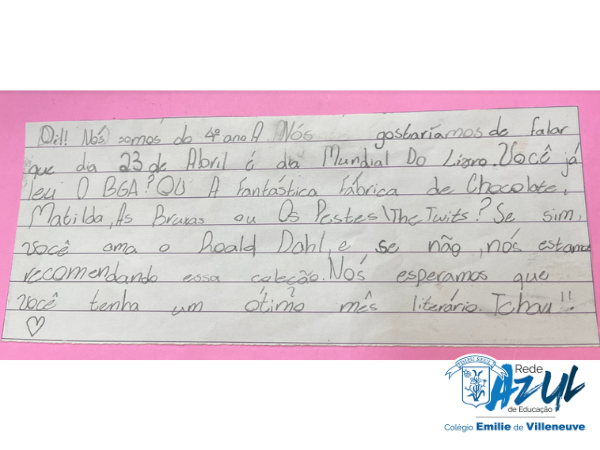 Oi!! Nós somos do 4º ano A Nós gostaríamos de falar
que dia 23 de Abril é dia Mundial Do Livro. Você já
leu O BGA? OU A Fantástica Fábrica de Chocolate,
Matilda, As Bruxas ou Os Pestes\The Twits? Se sim,
você ama o Roald Dahl, e se não, nós estamos
recomendando essa coleção. Nós esperamos que
você tenha um ótimo mês literário. Tchau!!
♡
Rede
AZUL
de Educação
Colégio Emilie de Villeneuve